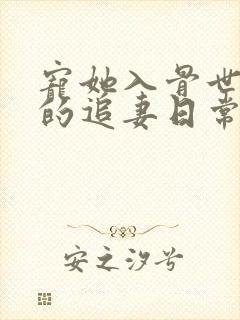 宠她入骨世
的追妻日常
安之汐兮